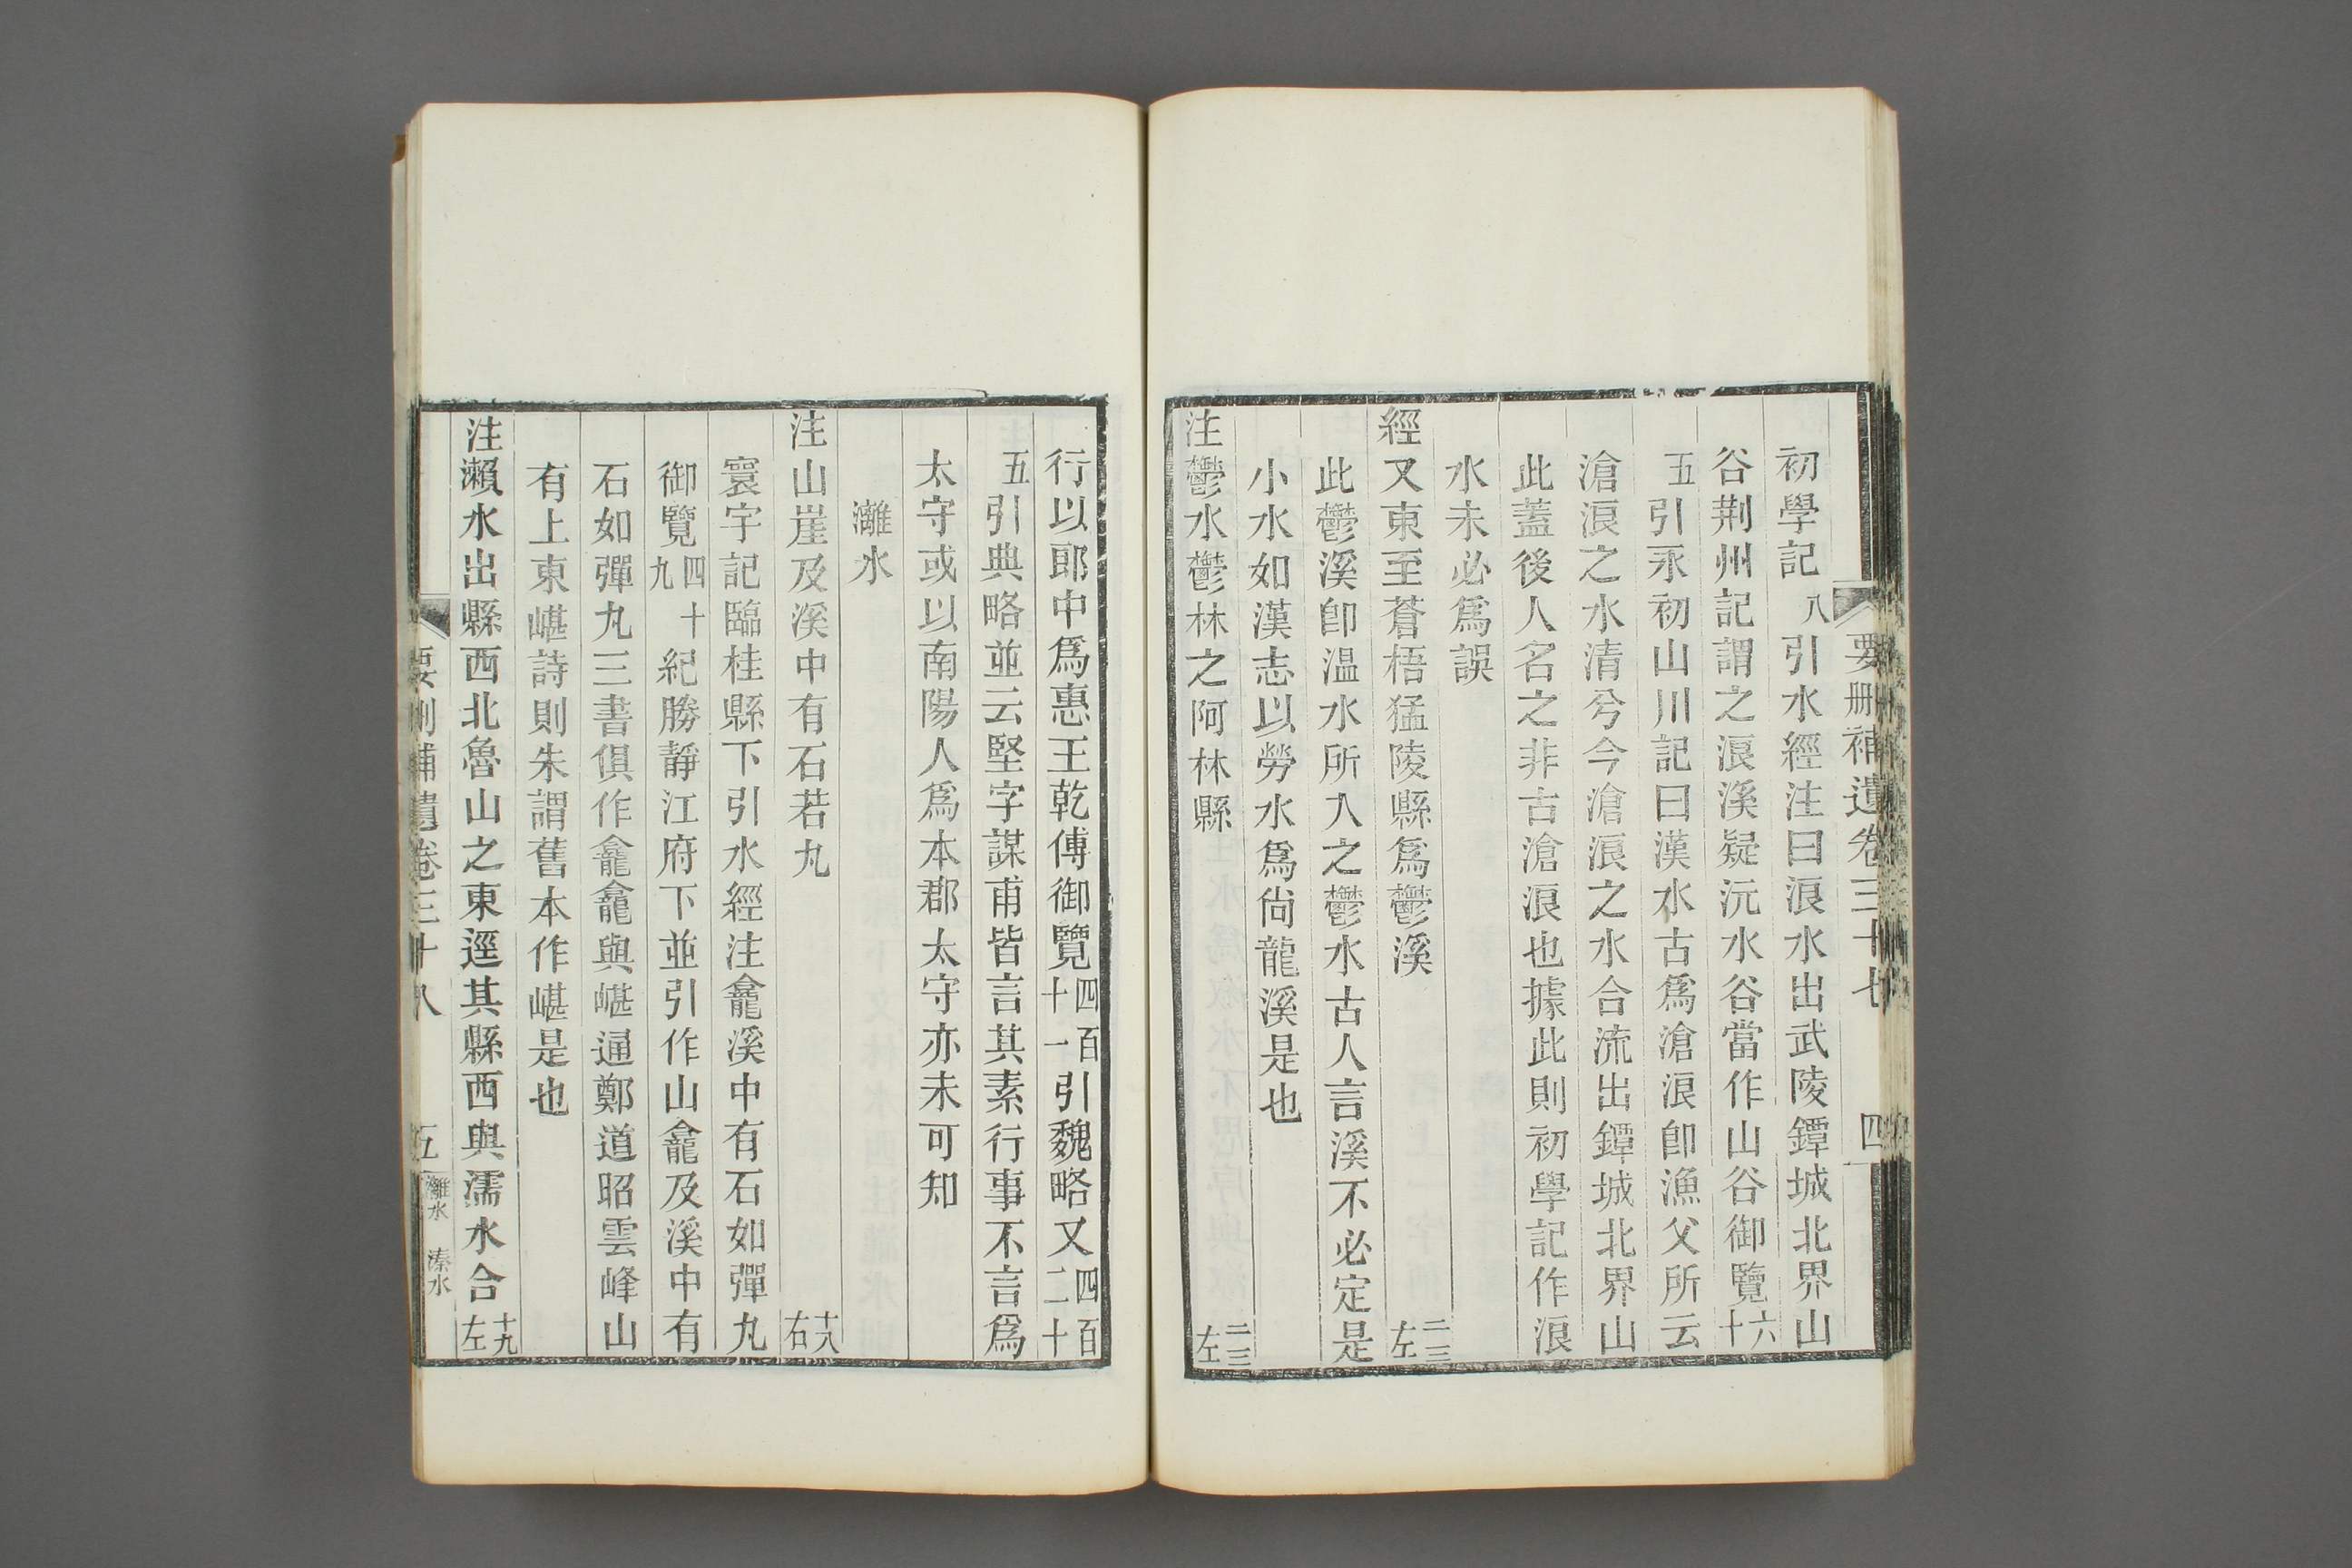 要刪補遺卷三十七 四
初學記八引水經注曰浪水出武陵鐔城北界山
谷荆州記謂之浪溪疑沅水谷當作山谷御覽六十
五引永初山川記曰漢水古爲滄浪卽漁父所云
滄浪之水清兮今滄浪之水合流出鐔城北界山
此蓋後人名之非古滄浪也據此則初學記作浪
水未必爲誤
經又東至蒼梧猛陵縣爲鬱溪 二三左
此鬱溪卽温水所入之鬱水古人言溪不必定是
小水如漢志以勞水爲尙龍溪是也
注鬱水鬱林之阿林縣 二三左
行以郎中爲惠王乾傅御覽四百十一引魏略又四百二十
五引典略並云堅字謀甫皆言其素行事不言爲
太守或以南陽人爲本郡太守亦未可知
灕水
注山崖及溪中有石若丸 十八右
寰宇記臨桂縣下引水經注龕溪中有石如彈丸
御覽四十九紀勝靜江府下並引作山龕及溪中有
石如彈丸三書俱作龕龕與嵁通鄭道昭雲峰山
有上東嵁詩則朱謂舊本作嵁是也
注瀨水出縣西北魯山之東逕其縣西與濡水合 十九左
要刪補遺卷三十八 五 灕水 溱水